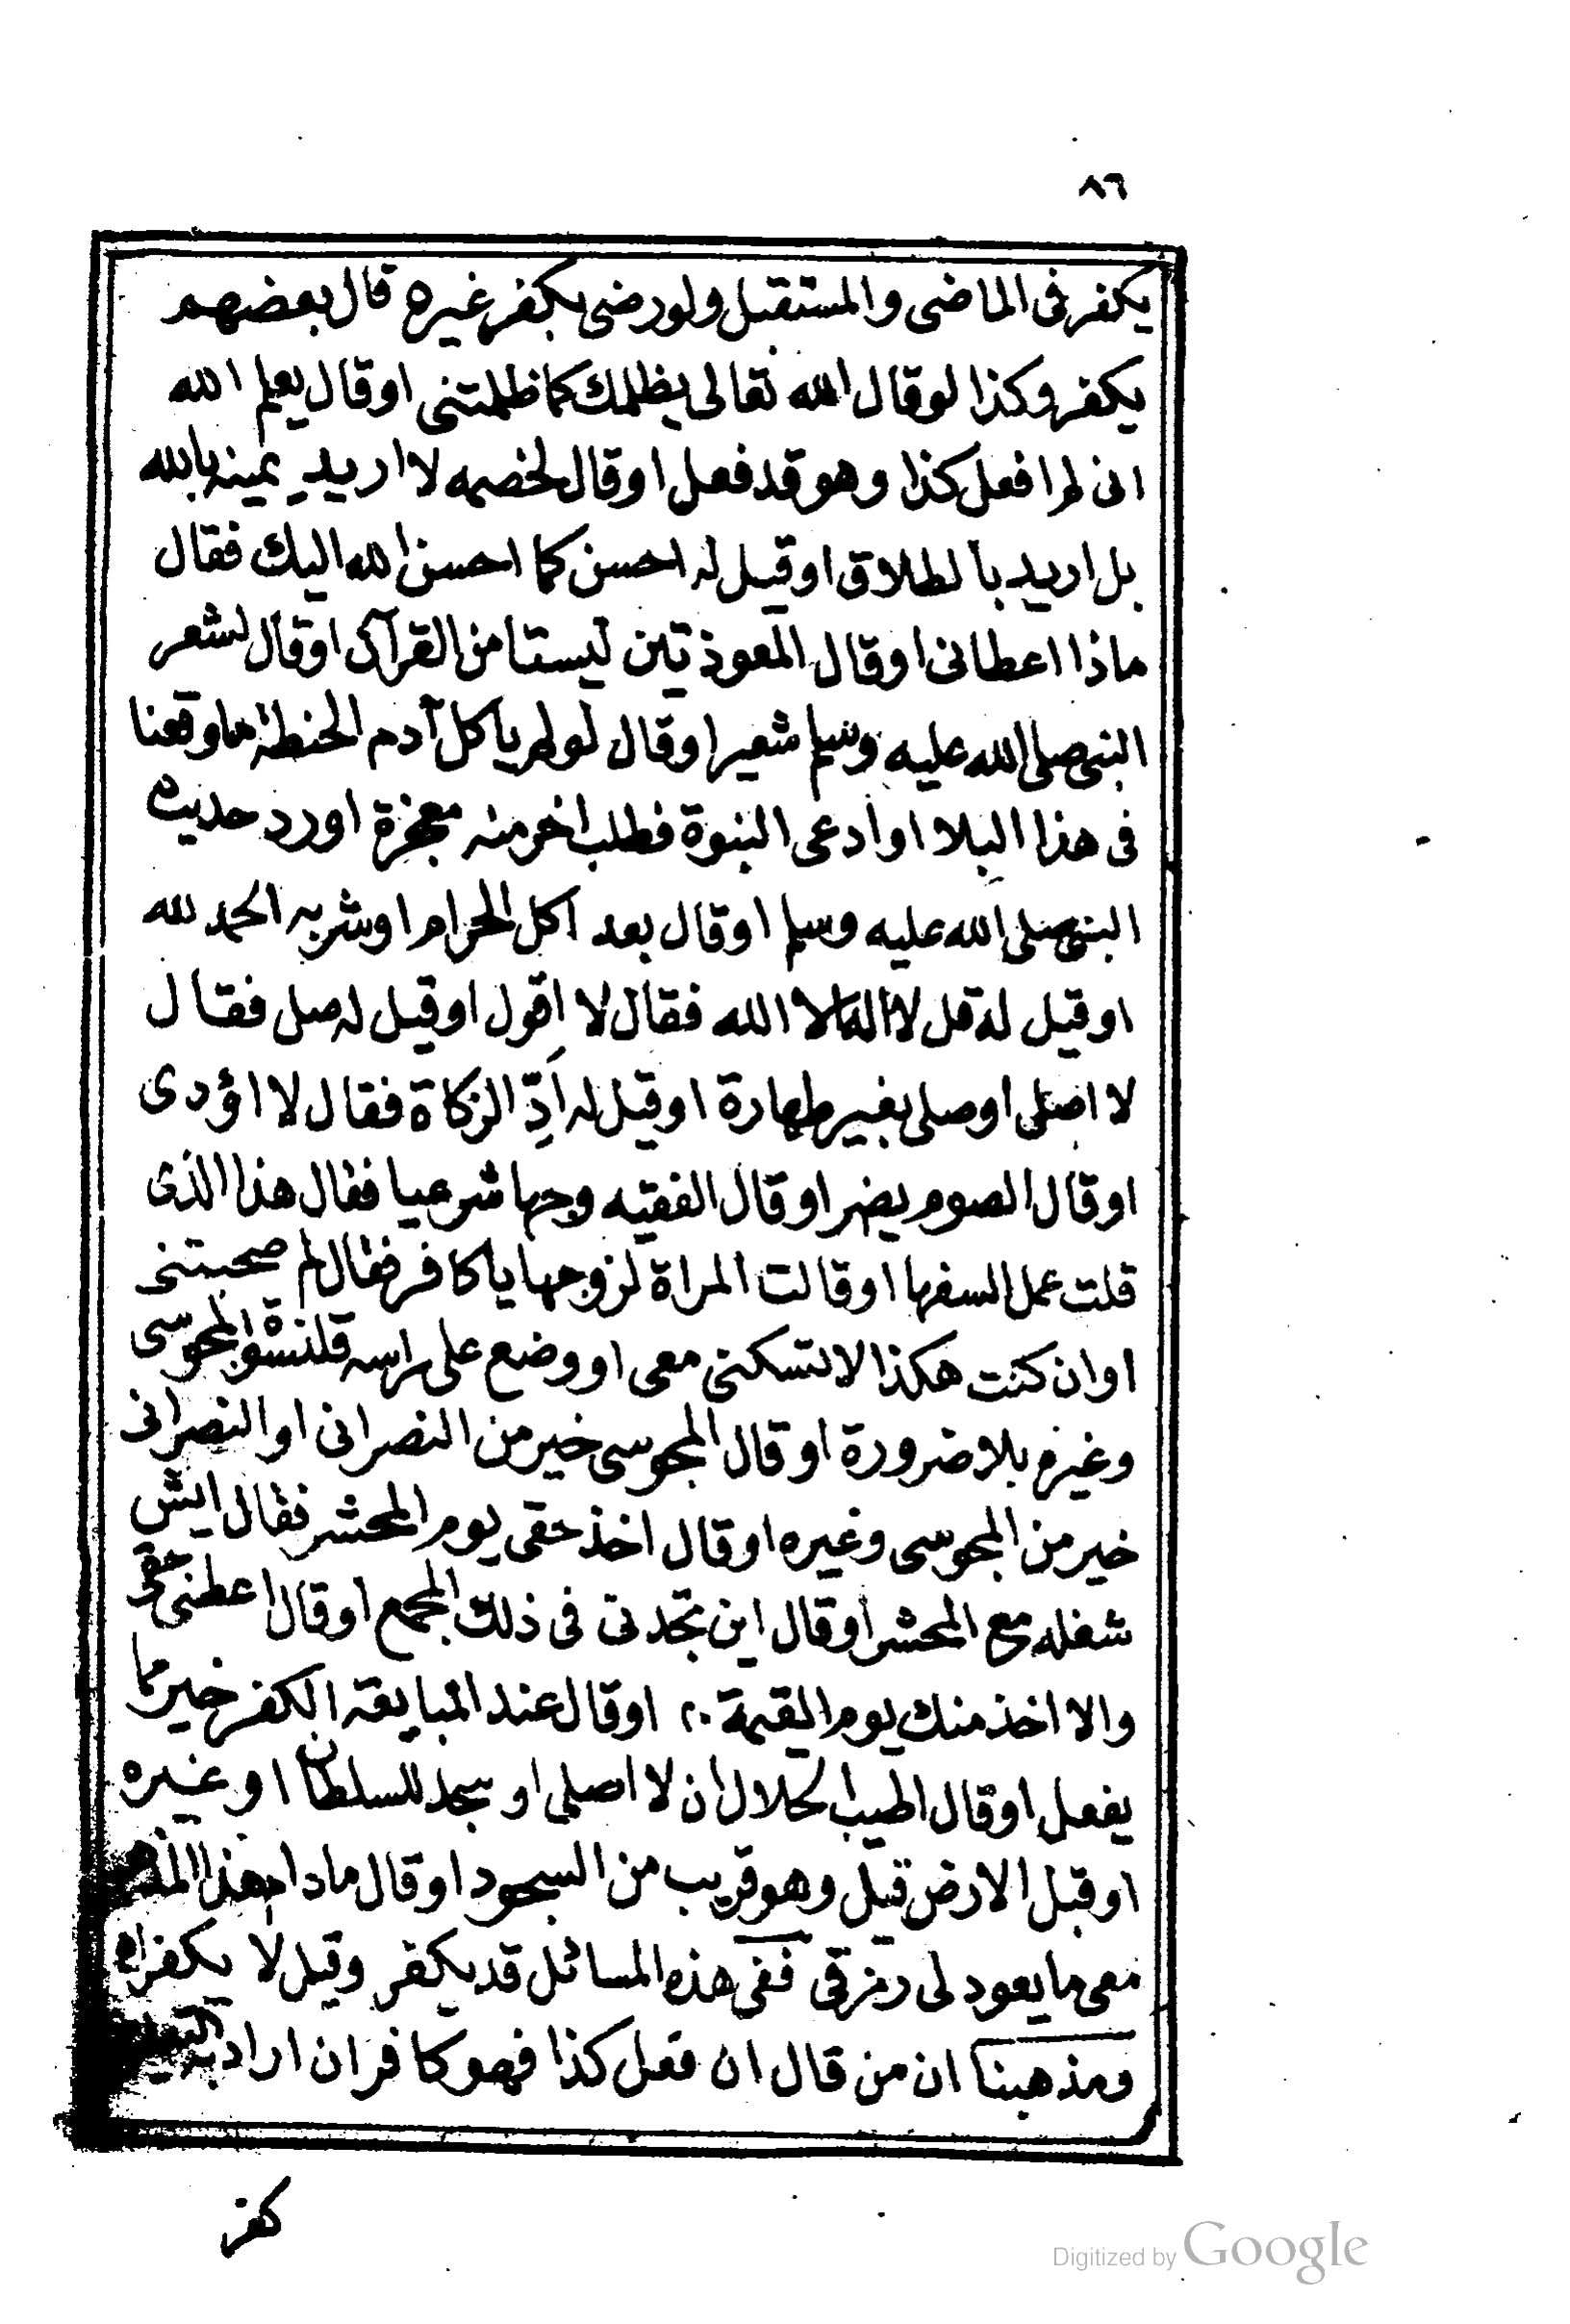 ٨٦
يكفر فى الماضى والمستقبل ولو رضى بكفر غيره قال بعضهم
يكفر وكذا لو قال الله تعالى يظلمك كما ظلمتنى او قال يعلم الله
انى لم افعل كذا وهو قد فعل او قال لخصمه لا اريد يمينه بالله
بل اريد بالطلاق او قيل له احسن كما احسن الله اليك فقال
ماذا اعطانى او قال المعوذتين ليستا من القرآن او قال لشعر
النبى صلى الله عليه وسلم شعيرا وقال لو لم ياكل آدم الحنطة ما وقعنا
فى هذا البلا او ادعى النبوة فطلب اخر منه معجزة او رد حديث
النبى صلى الله عليه وسلم او قال بعد اكل الحرام او شربه الحمد لله
او قيل له قل لا اله الا الله فقال لا اقول او قيل له صل فقال
لا اصلى او صلى بغير طهارة او قيل له ادِّ الزكاة فقال لا اؤدى
او قال الصوم يضر او قال الفقيه وجها شرعيا فقال هذا الذى
قلت عمل السفها او قالت المراة لزوجها يا كافر فقال لم صحبتنى
او ان كنت هكذا لا تسكنى معى او وضع على راسه قلنسوة المجوسى
وغيره بلا ضرورة او قال المجوسى خير من النصرانى او النصرانى
خير من المجوسى وغيره او قال اخذ حقى يوم المحشر فقال ايش
شغله مع المحشر او قال اين تجدنى فى ذلك المجمع او قال اعطنى حقى
والا اخذ منك يوم القيمة ٢٠ او قال عند المبايعة الكفر خير مما
يفعل او قال اطيب الحلال ان لا اصلى او سجد للسلطان او غيره
او قبل الارض قيل وهو قريب من السجود او قال مادام هذا
معى ما يعود لى رزقى ففى هذه المسائل قد يكفر وقيل لا يكفر
ومذهبنا ان من قال ان فعل كذا فهو كافر ان اراد به
كفر
Digitized by Google